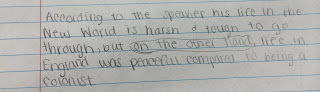 According to the speaker his life in the
New World is harsh & tough to go
through, but on the other hand, life in
England was peaceful compared to being a
colonist